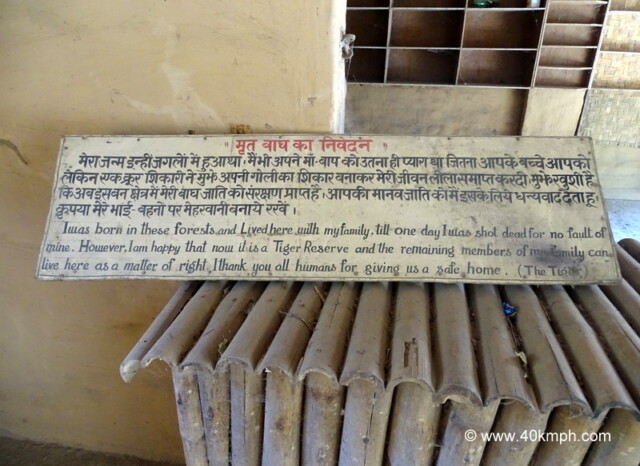 " मृत बाघ का निवेदन "
मेरा जन्म इन्ही जगलों में हुआ था। मैं भी अपने माँ-बाप को उतना ही प्यारा था जितना आपके बच्चे आपको
लेकिन एक क्रूर शिकारी ने मुझे अपनी गोली का शिकार बनाकर मेरी जीवन लीला समाप्त कर दी। मुझे खुशी है
कि अब इस वन क्षेत्र में मेरी बाघ जाति को संरक्षण प्राप्त है। आपकी मानव जाति को मैं इसके लिये धन्यवाद देता हूं
कृपया मेरे भाई-बहनो पर मेहरबानी बनाये रखें।
I was born in these forests and Lived here with my family, till one day I was shot dead for no fault of
mine. However, I am happy that now it is a Tiger Reserve and the remaining members of my family can
live here as a matter of right, I thank you all humans for giving us a safe home. (The Tiger)
© www.40kmph.com